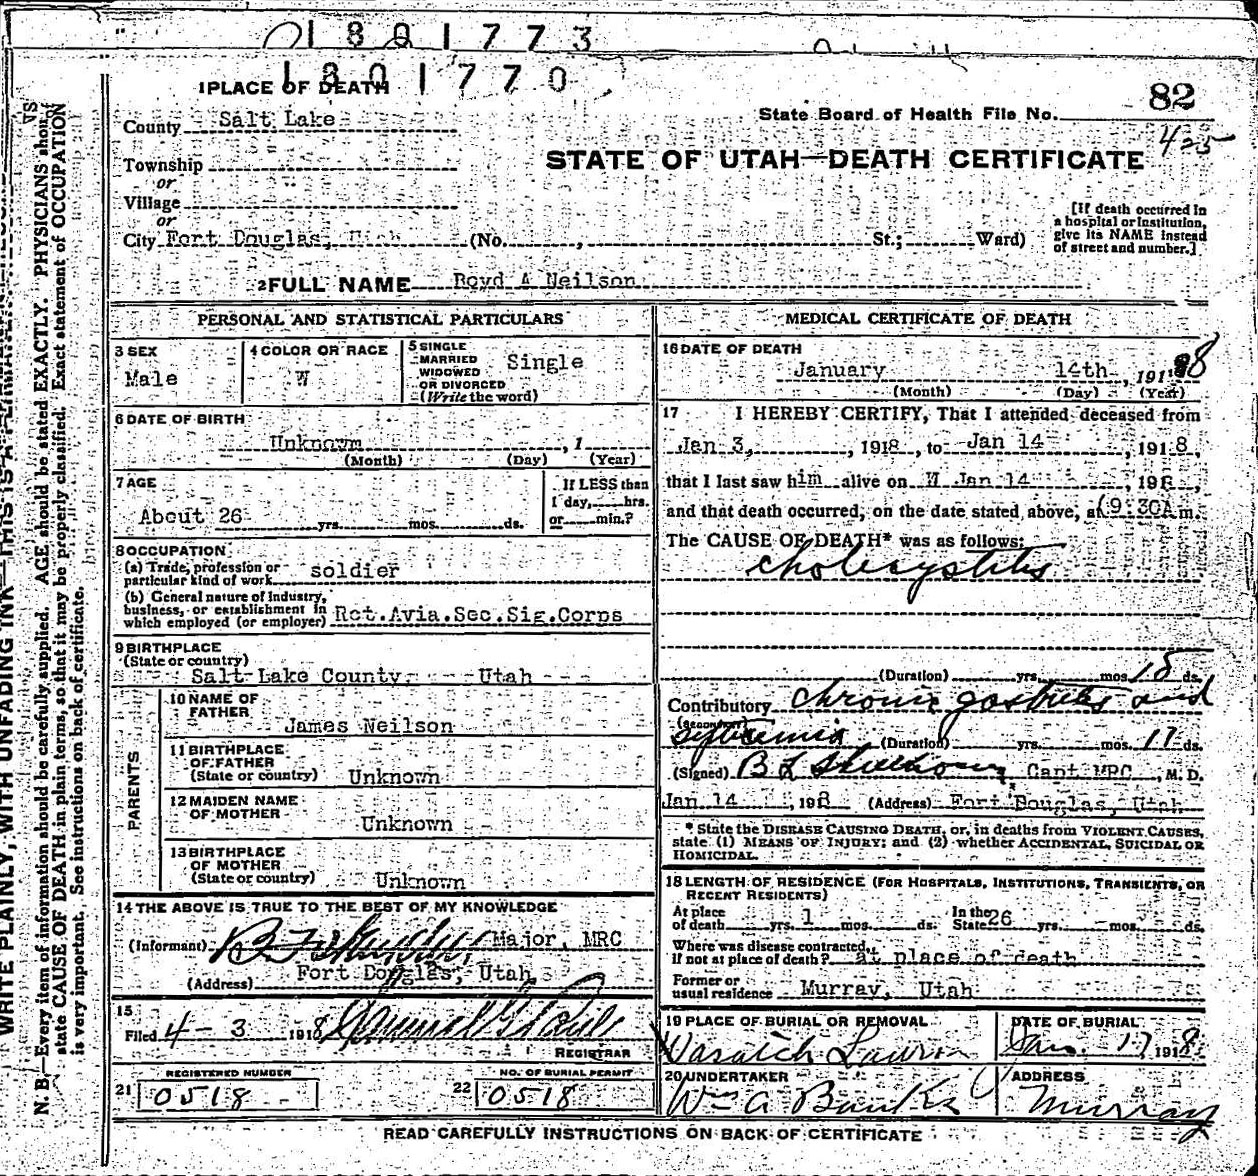 1801773
1301770
1 PLACE OF DEATH
82
State Board of Health File No.
425
County Salt Lake
STATE OF UTAH—DEATH CERTIFICATE
Township
or
Village
or
[If death occurred in
a hospital or institution,
give its NAME instead
of street and number.]
City Fort Douglas, (No. , St.; Ward)
2 FULL NAME Boyd A Neilson
PERSONAL AND STATISTICAL PARTICULARS
3 SEX
Male
4 COLOR OR RACE
W
5 SINGLE
MARRIED
WIDOWED
OR DIVORCED
(Write the word)
Single
6 DATE OF BIRTH
Unknown , 1
(Month) (Day) (Year)
7 AGE
About 26 yrs. mos. ds.
If LESS than
1 day, hrs.
or min.?
8 OCCUPATION
(a) Trade, profession or
particular kind of work soldier
(b) General nature of industry,
business, or establishment in
which employed (or employer) Rct.Avia.Sec.Sig.Corps
9 BIRTHPLACE
(State or country)
Salt Lake County, Utah
PARENTS
10 NAME OF
FATHER
James Neilson
11 BIRTHPLACE
OF FATHER
(State or country) Unknown
12 MAIDEN NAME
OF MOTHER
Unknown
13 BIRTHPLACE
OF MOTHER
(State or country) Unknown
14 THE ABOVE IS TRUE TO THE BEST OF MY KNOWLEDGE
(Informant) Major, MRC
(Address) Fort Douglas, Utah
15
Filed 4-3 1918
REGISTRAR
REGISTERED NUMBER
21 0518
NO. OF BURIAL PERMIT
22 0518
MEDICAL CERTIFICATE OF DEATH
16 DATE OF DEATH
January 14th , 1918
(Month) (Day) (Year)
17 I HEREBY CERTIFY, That I attended deceased from
Jan 3, , 1918, to Jan 14 , 1918,
that I last saw him alive on W Jan 14 , 198,
and that death occurred, on the date stated above, at 9:30A m.
The CAUSE OF DEATH* was as follows:
cholecystitis
(Duration) yrs. mos. 15 ds.
Contributory chronic gastritis and
(Secondary)
septicemia (Duration) yrs. mos. 17 ds.
(Signed) Capt MRC, M. D.
Jan 14 , 198 (Address) Fort Douglas, Utah
* State the DISEASE CAUSING DEATH, or, in deaths from VIOLENT CAUSES,
state (1) MEANS OF INJURY; and (2) whether ACCIDENTAL, SUICIDAL OR
HOMICIDAL.
18 LENGTH OF RESIDENCE (FOR HOSPITALS, INSTITUTIONS, TRANSIENTS, OR
RECENT RESIDENTS)
At place
of death yrs. 1 mos. ds.
In the
State 26 yrs. mos. ds.
Where was disease contracted,
if not at place of death? at place of death
Former or
usual residence Murray, Utah
19 PLACE OF BURIAL OR REMOVAL
Wasatch Lawn
DATE OF BURIAL
Jan. 17 1918
20 UNDERTAKER
Wm A Banks
ADDRESS
Murray
READ CAREFULLY INSTRUCTIONS ON BACK OF CERTIFICATE
VS
WRITE PLAINLY, WITH UNFADING INK—THIS IS A PERMANENT
N. B.—Every item of information should be carefully supplied. AGE should be stated EXACTLY. PHYSICIANS should
state CAUSE OF DEATH in plain terms, so that it may be properly classified. Exact statement of OCCUPATION
is very important. See instructions on back of certificate.